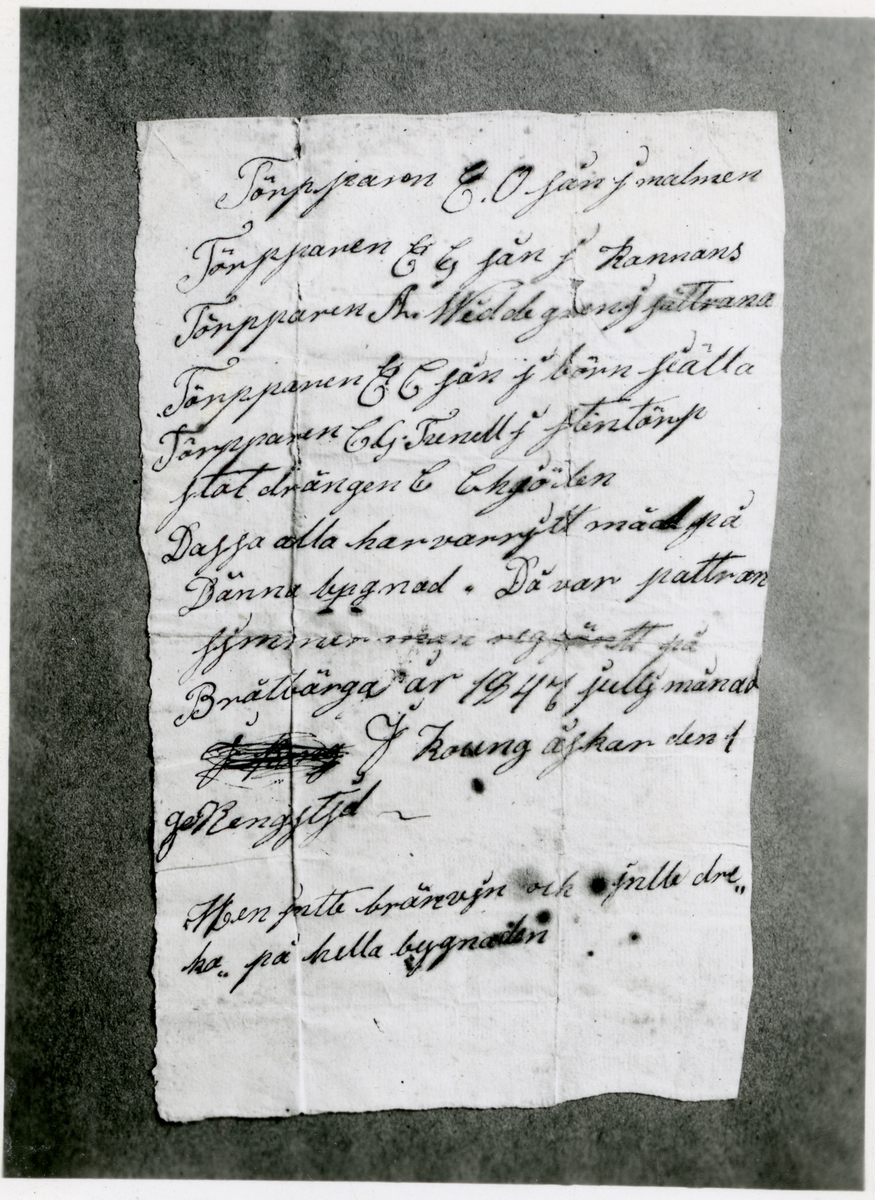 Törpparen E. O sån j malmen
Törpparen E G sån j Kannans
Törpparen A. Weddegrenj sättrana
Törpparen E C sån j börn sválla
Törpparen C G. Trenell j stentörp
stat drängen C Ekgöden
Dassa alla har varrjtt måd på
Dänna bygnad. Då var pattron
symmer man reg på
Bråtbärga år 1847 jullj månad
J Koung åskar den 1
geRengstjd
Men jntte bränvjn och jntte dre„
ka„ på hella bygnaden